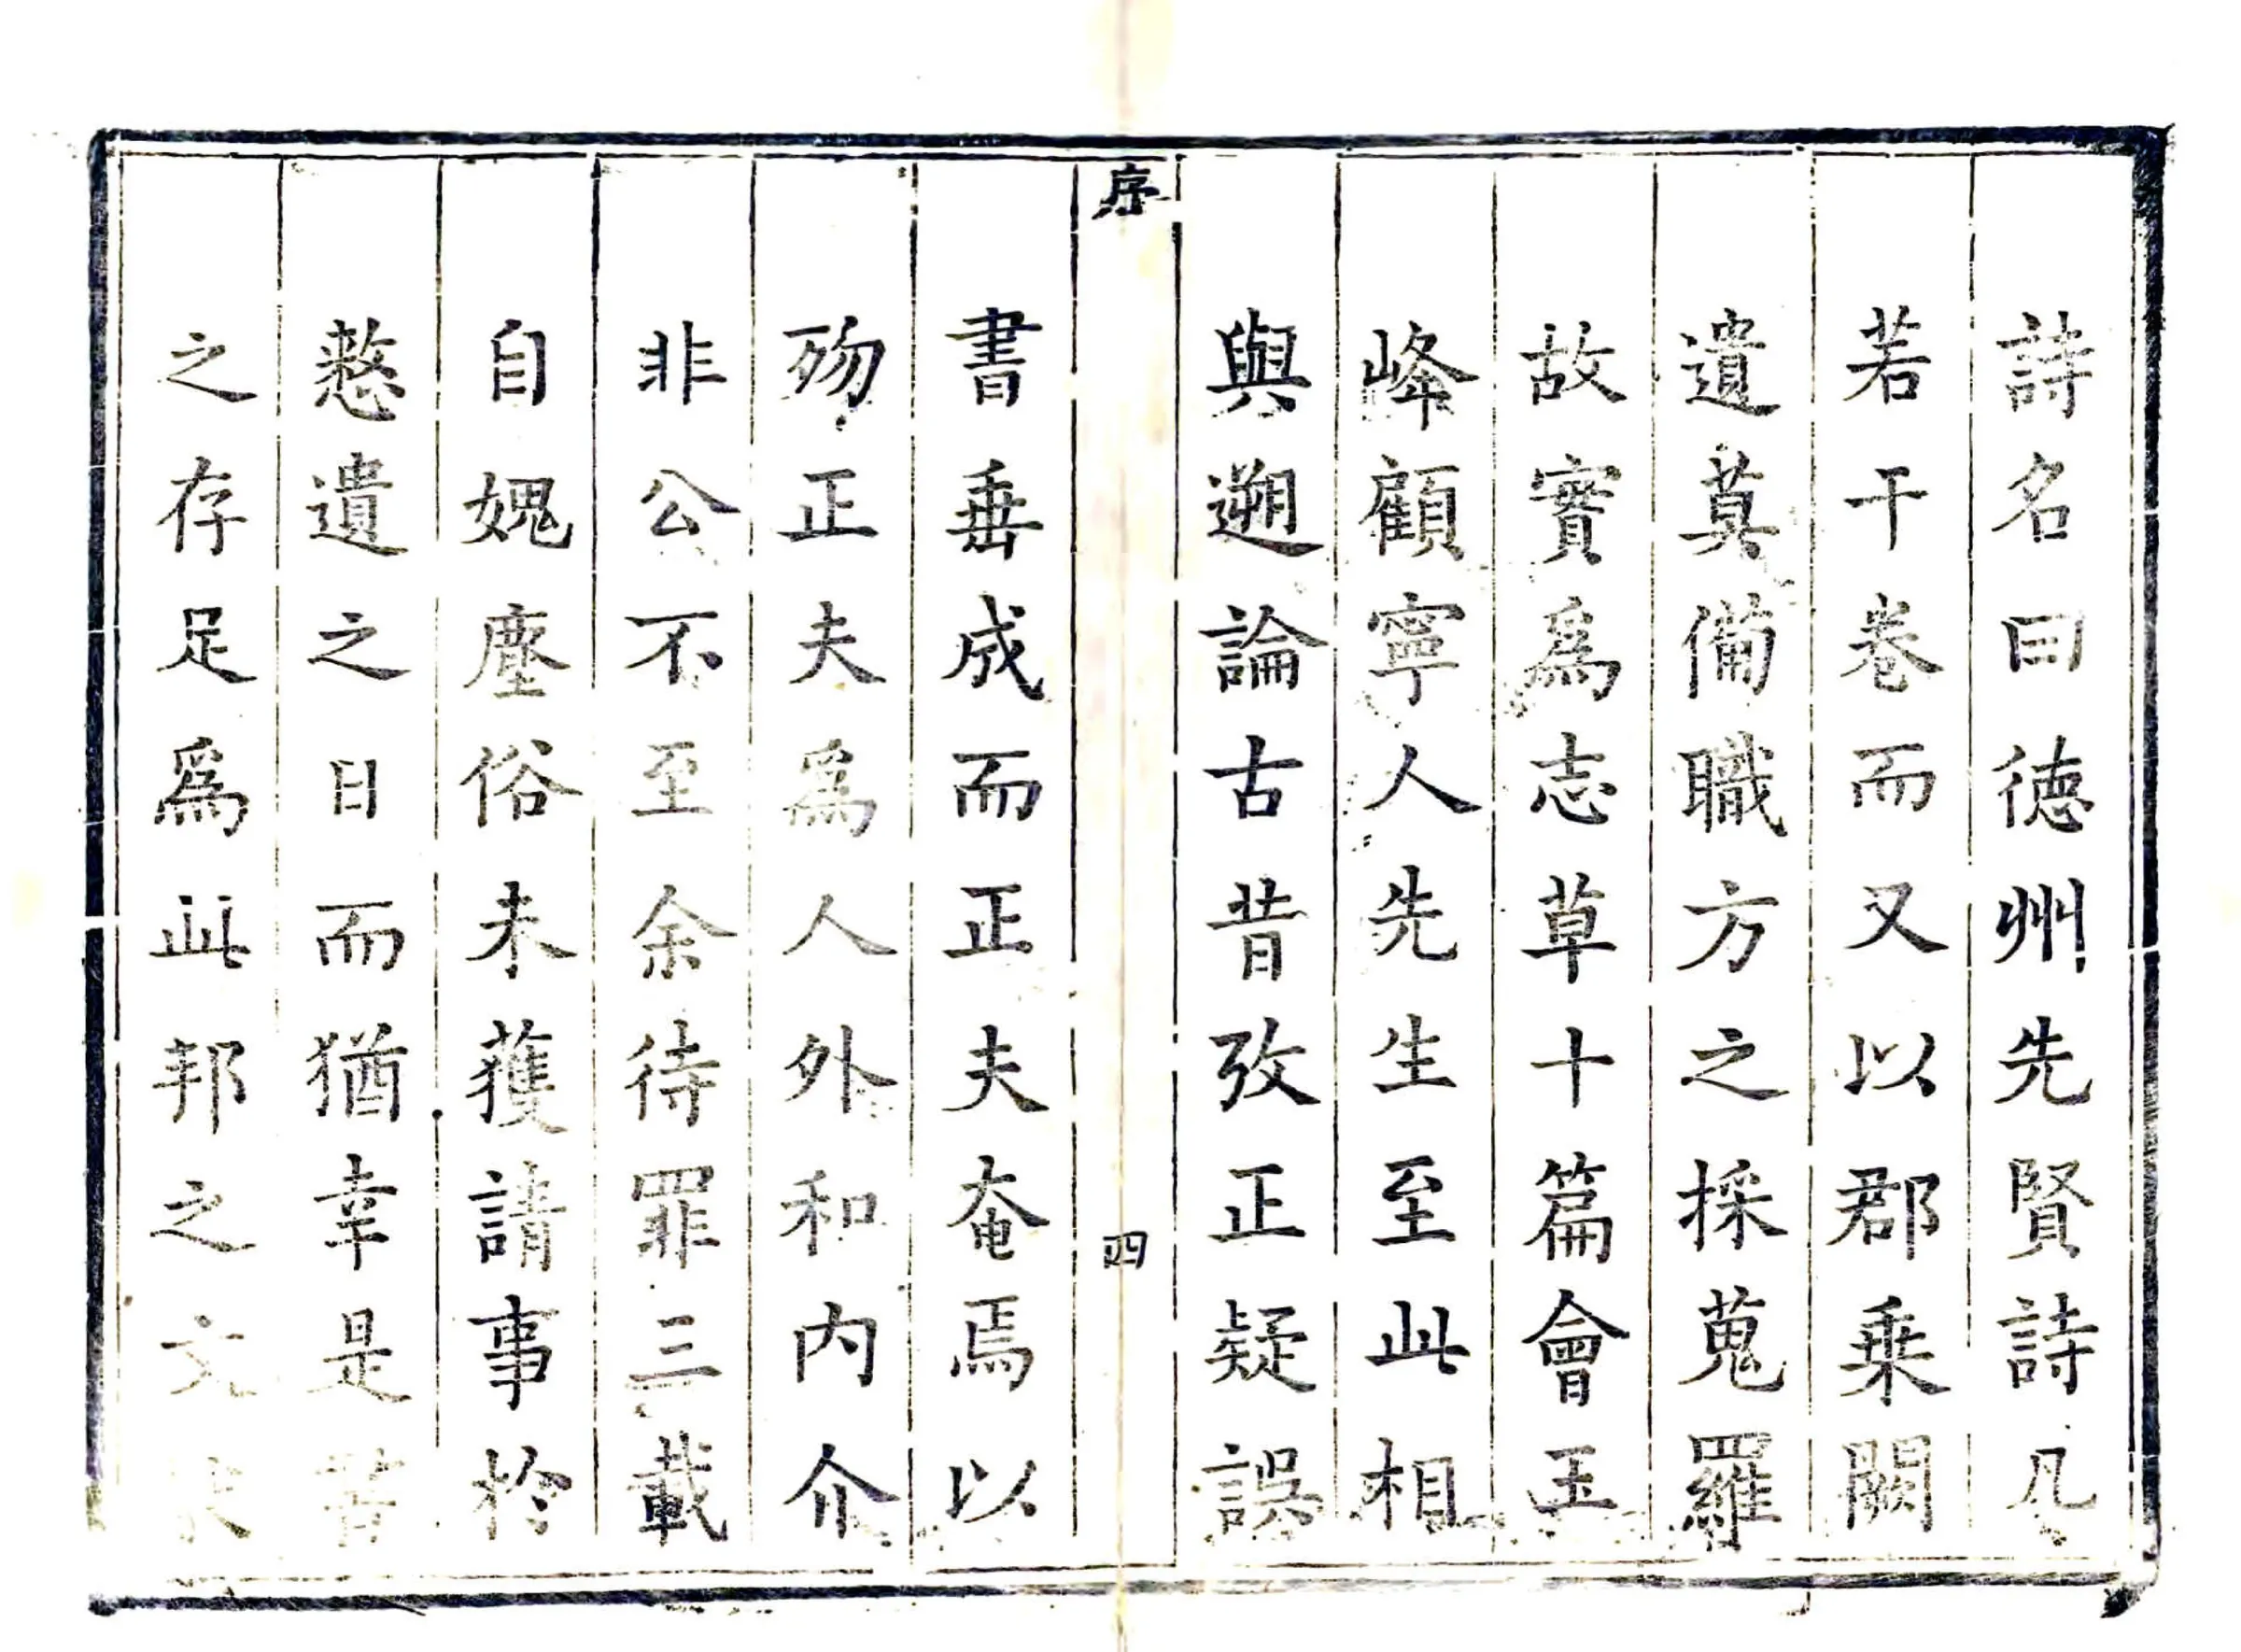 詩名曰徳州先賢詩凡
若干卷而又以郡乗闕
遺莫備職方之採蒐羅
故實爲志草十篇會玉
峰顧寧人先生至此相
與遡論古昔攷正疑誤
序
四
書垂成而正夫奄焉以
歾正夫爲人外和内介
非公不至余待罪三載
自媿塵俗未獲請事扵
憖遺之日而猶幸是書
之存足爲此邦之文